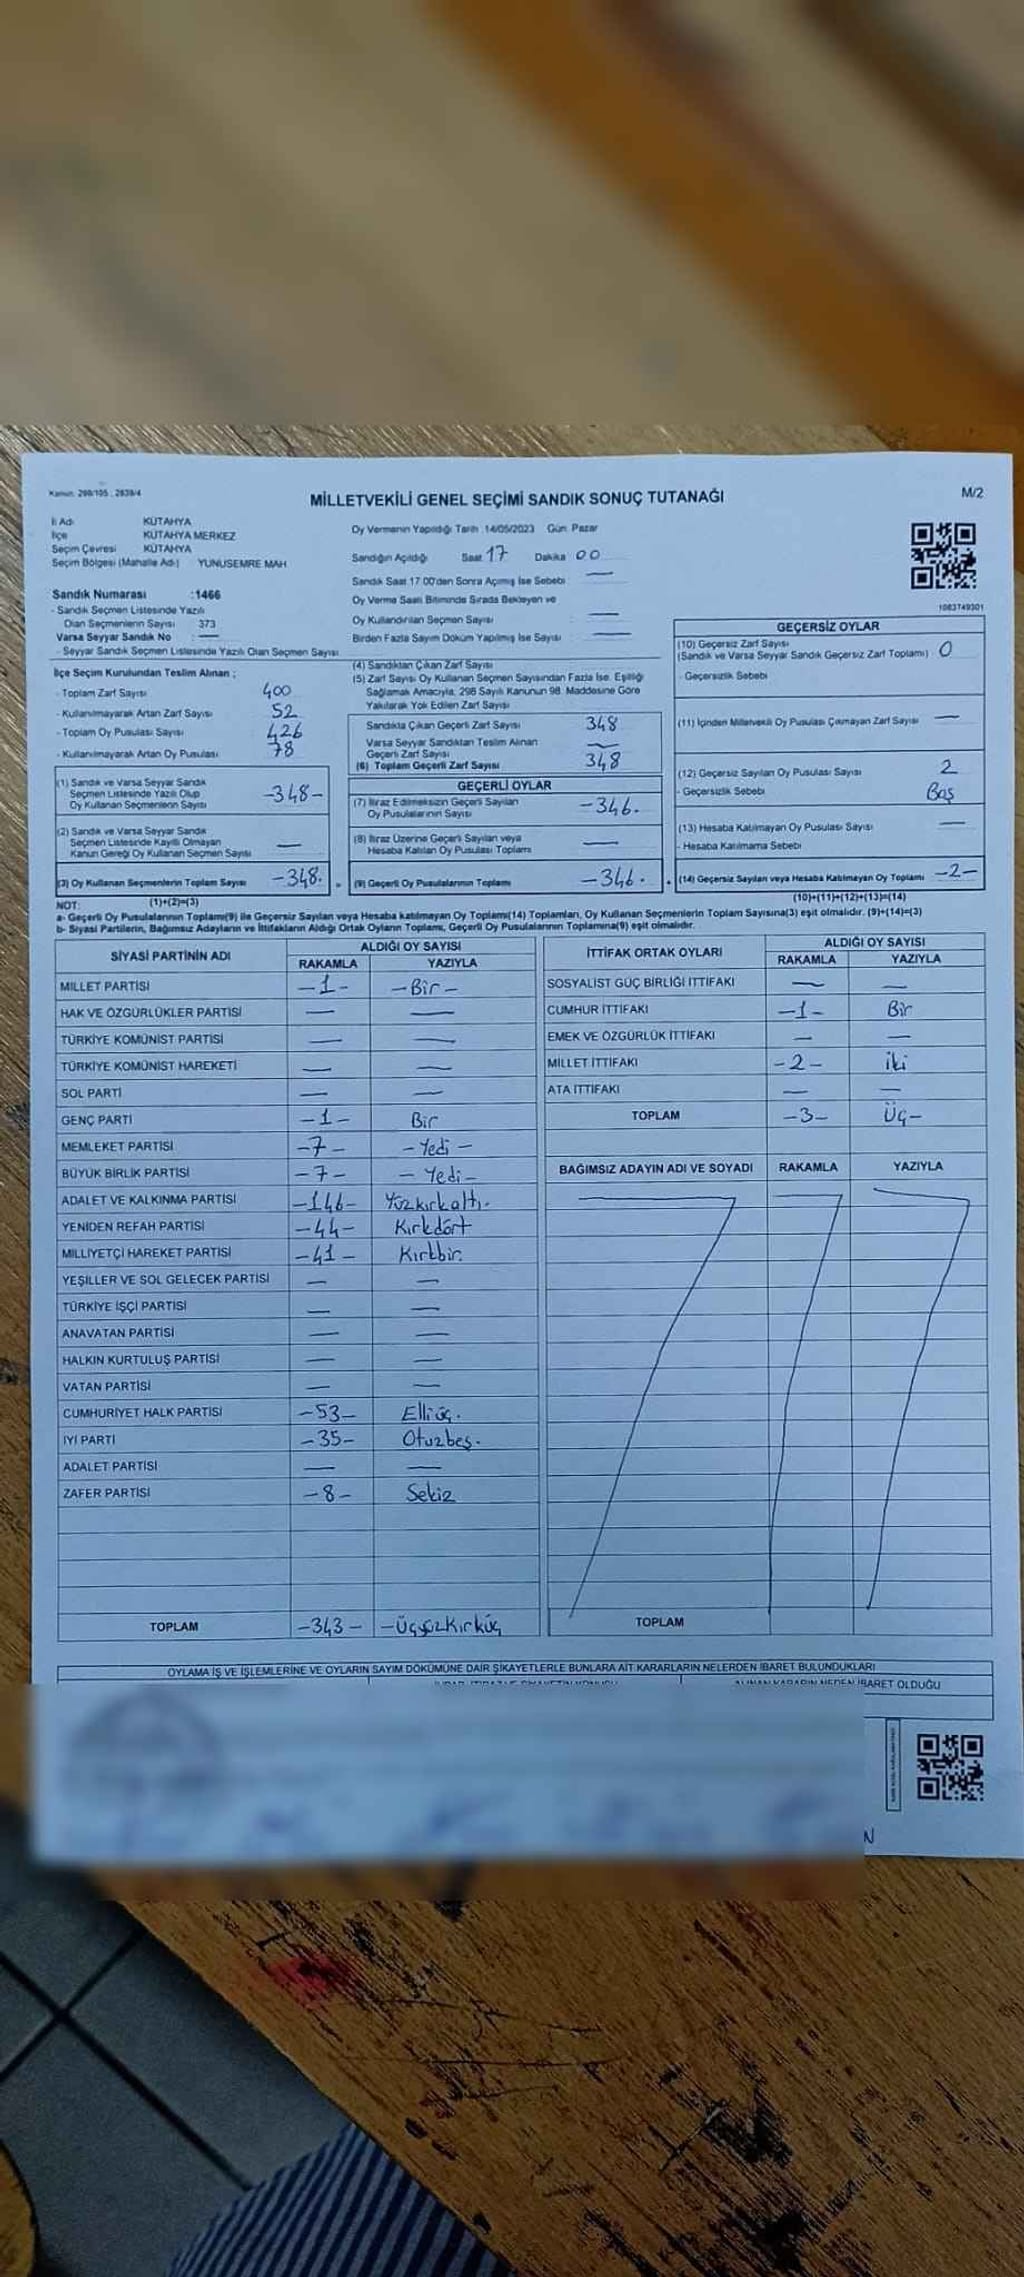 Kanun: 298/105 , 2839/4
MİLLETVEKİLİ GENEL SEÇİMİ SANDIK SONUÇ TUTANAĞI
M/2
İl Adı KÜTAHYA
İlçe KÜTAHYA MERKEZ
Seçim Çevresi KÜTAHYA
Seçim Bölgesi (Mahalle Adı) YUNUSEMRE MAH
Sandık Numarası :1466
- Sandık Seçmen Listesinde Yazılı
Olan Seçmenlerin Sayısı 373
Varsa Seyyar Sandık No : —
- Seyyar Sandık Seçmen Listesinde Yazılı Olan Seçmen Sayısı
Oy Vermenin Yapıldığı Tarih 14/05/2023 Gün: Pazar
Sandığın Açıldığı Saat 17 Dakika 00
Sandık Saat 17.00'den Sonra Açılmış İse Sebebi —
Oy Verme Saati Bitiminde Sırada Bekleyen ve
Oy Kullandırılan Seçmen Sayısı —
Birden Fazla Sayım Döküm Yapılmış İse Sayısı —
1083749301
İlçe Seçim Kurulundan Teslim Alınan ;
- Toplam Zarf Sayısı 400
- Kullanılmayarak Artan Zarf Sayısı 52
- Toplam Oy Pusulası Sayısı 426
- Kullanılmayarak Artan Oy Pusulası 78
(1) Sandık ve Varsa Seyyar Sandık
Seçmen Listesinde Yazılı Olup
Oy Kullanan Seçmenlerin Sayısı -348-
(2) Sandık ve Varsa Seyyar Sandık
Seçmen Listesinde Kayıtlı Olmayan
Kanun Gereği Oy Kullanan Seçmen Sayısı —
(3) Oy Kullanan Seçmenlerin Toplam Sayısı -348.
(1)+(2)=(3)
(4) Sandıktan Çıkan Zarf Sayısı
(5) Zarf Sayısı Oy Kullanan Seçmen Sayısından Fazla İse, Eşitliği
Sağlamak Amacıyla, 298 Sayılı Kanunun 98. Maddesine Göre
Yakılarak Yok Edilen Zarf Sayısı
Sandıkta Çıkan Geçerli Zarf Sayısı 348
Varsa Seyyar Sandıktan Teslim Alınan
Geçerli Zarf Sayısı —
(6) Toplam Geçerli Zarf Sayısı 348
GEÇERLİ OYLAR
(7) İtiraz Edilmeksizin Geçerli Sayılan
Oy Pusulalarının Sayısı -346.
(8) İtiraz Üzerine Geçerli Sayılan veya
Hesaba Katılan Oy Pusulası Toplamı —
(9) Geçerli Oy Pusulalarının Toplamı -346.
GEÇERSİZ OYLAR
(10) Geçersiz Zarf Sayısı
(Sandık ve Varsa Seyyar Sandık Geçersiz Zarf Toplamı) 0
- Geçersizlik Sebebi
(11) İçinden Milletvekili Oy Pusulası Çıkmayan Zarf Sayısı —
(12) Geçersiz Sayılan Oy Pusulası Sayısı 2
- Geçersizlik Sebebi Boş
(13) Hesaba Katılmayan Oy Pusulası Sayısı —
- Hesaba Katılmama Sebebi
(14) Geçersiz Sayılan veya Hesaba Katılmayan Oy Toplamı -2-
(10)+(11)+(12)+(13)=(14)
NOT:
a- Geçerli Oy Pusulalarının Toplamı(9) ile Geçersiz Sayılan veya Hesaba katılmayan Oy Toplamı(14) Toplamları, Oy Kullanan Seçmenlerin Toplam Sayısına(3) eşit olmalıdır. (9)+(14)=(3)
b- Siyasi Partilerin, Bağımsız Adayların ve İttifakların Aldığı Ortak Oyların Toplamı, Geçerli Oy Pusulalarının Toplamına(9) eşit olmalıdır.
SİYASİ PARTİNİN ADI ALDIĞI OY SAYISI
RAKAMLA YAZIYLA
MİLLET PARTİSİ -1- -Bir-
HAK VE ÖZGÜRLÜKLER PARTİSİ — —
TÜRKİYE KOMÜNİST PARTİSİ — —
TÜRKİYE KOMÜNİST HAREKETİ — —
SOL PARTİ — —
GENÇ PARTİ -1- Bir
MEMLEKET PARTİSİ -7- -Yedi-
BÜYÜK BİRLİK PARTİSİ -7- -Yedi-
ADALET VE KALKINMA PARTİSİ -146- Yüzkırkaltı.
YENİDEN REFAH PARTİSİ -44- Kırkdört
MİLLİYETÇİ HAREKET PARTİSİ -41- Kırkbir.
YEŞİLLER VE SOL GELECEK PARTİSİ — —
TÜRKİYE İŞÇİ PARTİSİ — —
ANAVATAN PARTİSİ — —
HALKIN KURTULUŞ PARTİSİ — —
VATAN PARTİSİ — —
CUMHURİYET HALK PARTİSİ -53- Elliüç.
İYİ PARTİ -35- Otuzbeş.
ADALET PARTİSİ — —
ZAFER PARTİSİ -8- Sekiz
TOPLAM -343- -Üçyüzkırküç
İTTİFAK ORTAK OYLARI ALDIĞI OY SAYISI
RAKAMLA YAZIYLA
SOSYALİST GÜÇ BİRLİĞİ İTTİFAKI — —
CUMHUR İTTİFAKI -1- Bir
EMEK VE ÖZGÜRLÜK İTTİFAKI — —
MİLLET İTTİFAKI -2- İki
ATA İTTİFAKI — —
TOPLAM -3- Üç-
BAĞIMSIZ ADAYIN ADI VE SOYADI RAKAMLA YAZIYLA
TOPLAM
OYLAMA İŞ VE İŞLEMLERİNE VE OYLARIN SAYIM DÖKÜMÜNE DAİR ŞİKAYETLERLE BUNLARA AİT KARARLARIN NELERDEN İBARET BULUNDUKLARI
ALINAN KARARIN NEDEN İBARET OLDUĞU
N